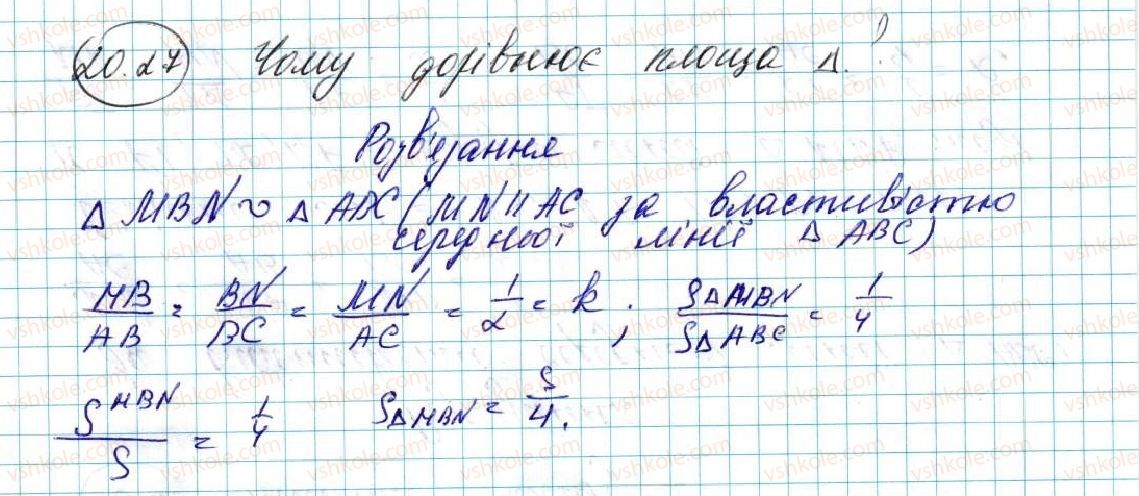 20.27 Чому дорівнює площа Δ.?
Розв'язання
Δ MBN ∾ Δ ABC (MN || AC за властивістю
середньої лінії Δ ABC)
MB/AB = BN/BC = MN/AC = 1/2 = k ; SΔMBN/SΔABC = 1/4
S MBN/S = 1/4 SΔMBN = S/4.